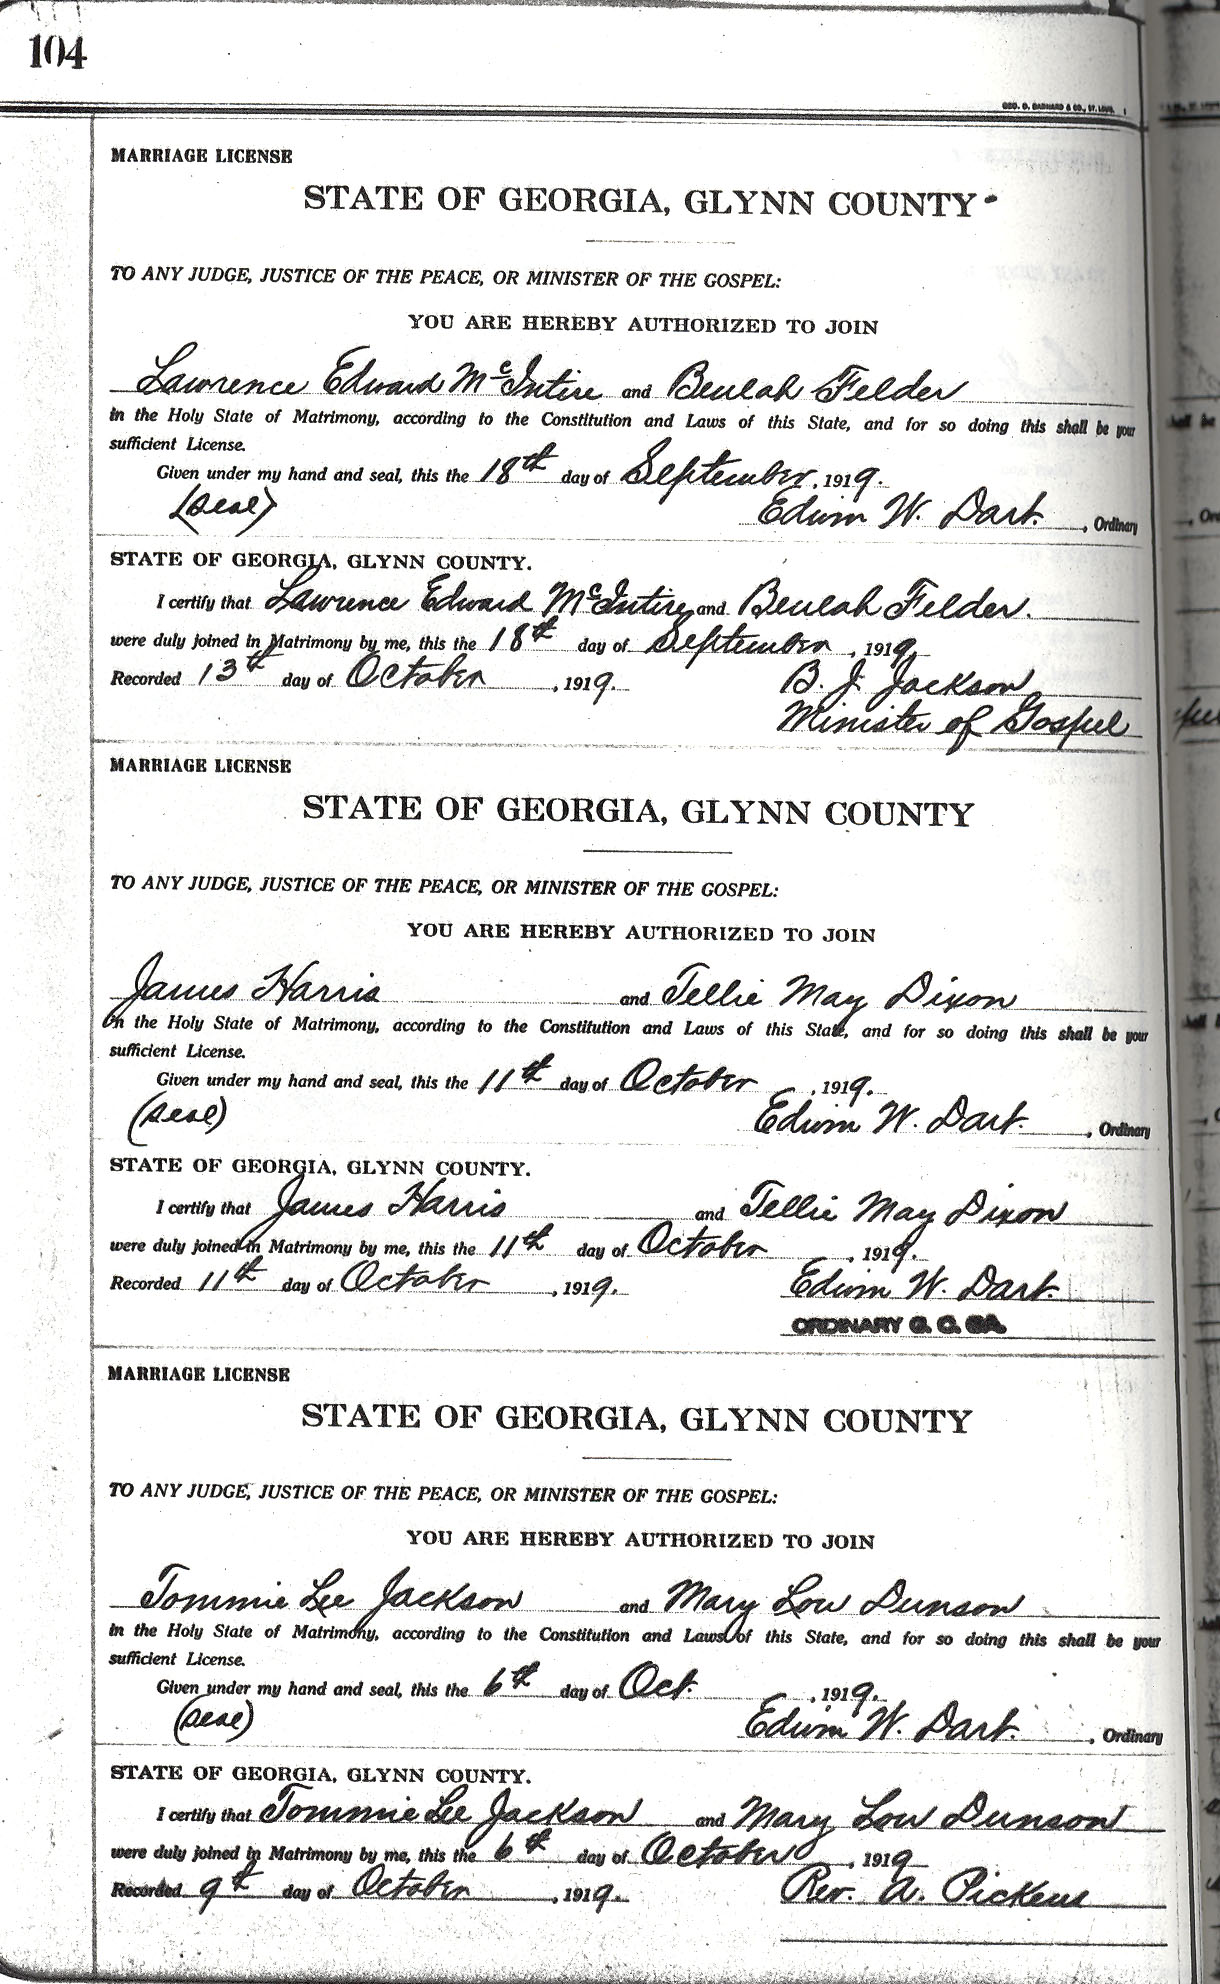 104
GEO. D. BARNARD & CO., ST. LOUIS.
MARRIAGE LICENSE
STATE OF GEORGIA, GLYNN COUNTY
TO ANY JUDGE, JUSTICE OF THE PEACE, OR MINISTER OF THE GOSPEL:
YOU ARE HEREBY AUTHORIZED TO JOIN
Lawrence Edward McIntire and Beulah Felder
in the Holy State of Matrimony, according to the Constitution and Laws of this State, and for so doing this shall be your
sufficient License.
Given under my hand and seal, this the 18th day of September, 1919.
(Seal) Edwin W. Dart. , Ordinary
STATE OF GEORGIA, GLYNN COUNTY.
I certify that Lawrence Edward McIntire and Beulah Felder.
were duly joined in Matrimony by me, this the 18th day of September, 1919
Recorded 13th day of October, 1919. B. J. Jackson
Minister of Gospel
MARRIAGE LICENSE
STATE OF GEORGIA, GLYNN COUNTY
TO ANY JUDGE, JUSTICE OF THE PEACE, OR MINISTER OF THE GOSPEL:
YOU ARE HEREBY AUTHORIZED TO JOIN
James Harris and Tellie May Dixon
in the Holy State of Matrimony, according to the Constitution and Laws of this State, and for so doing this shall be your
sufficient License.
Given under my hand and seal, this the 11th day of October, 1919.
(Seal) Edwin W. Dart. , Ordinary
STATE OF GEORGIA, GLYNN COUNTY.
I certify that James Harris and Tellie May Dixon
were duly joined in Matrimony by me, this the 11th day of October, 1919.
Recorded 11th day of October, 1919. Edwin W. Dart.
ORDINARY G. C. GA.
MARRIAGE LICENSE
STATE OF GEORGIA, GLYNN COUNTY
TO ANY JUDGE, JUSTICE OF THE PEACE, OR MINISTER OF THE GOSPEL:
YOU ARE HEREBY AUTHORIZED TO JOIN
Tommie Lee Jackson and Mary Lou Dunson
in the Holy State of Matrimony, according to the Constitution and Laws of this State, and for so doing this shall be your
sufficient License.
Given under my hand and seal, this the 6th day of Oct. , 1919.
(Seal) Edwin W. Dart. , Ordinary
STATE OF GEORGIA, GLYNN COUNTY.
I certify that Tommie Lee Jackson and Mary Lou Dunson
were duly joined in Matrimony by me, this the 6th day of October, 1919
Recorded 9th day of October, 1919. Rev. A. Pickens